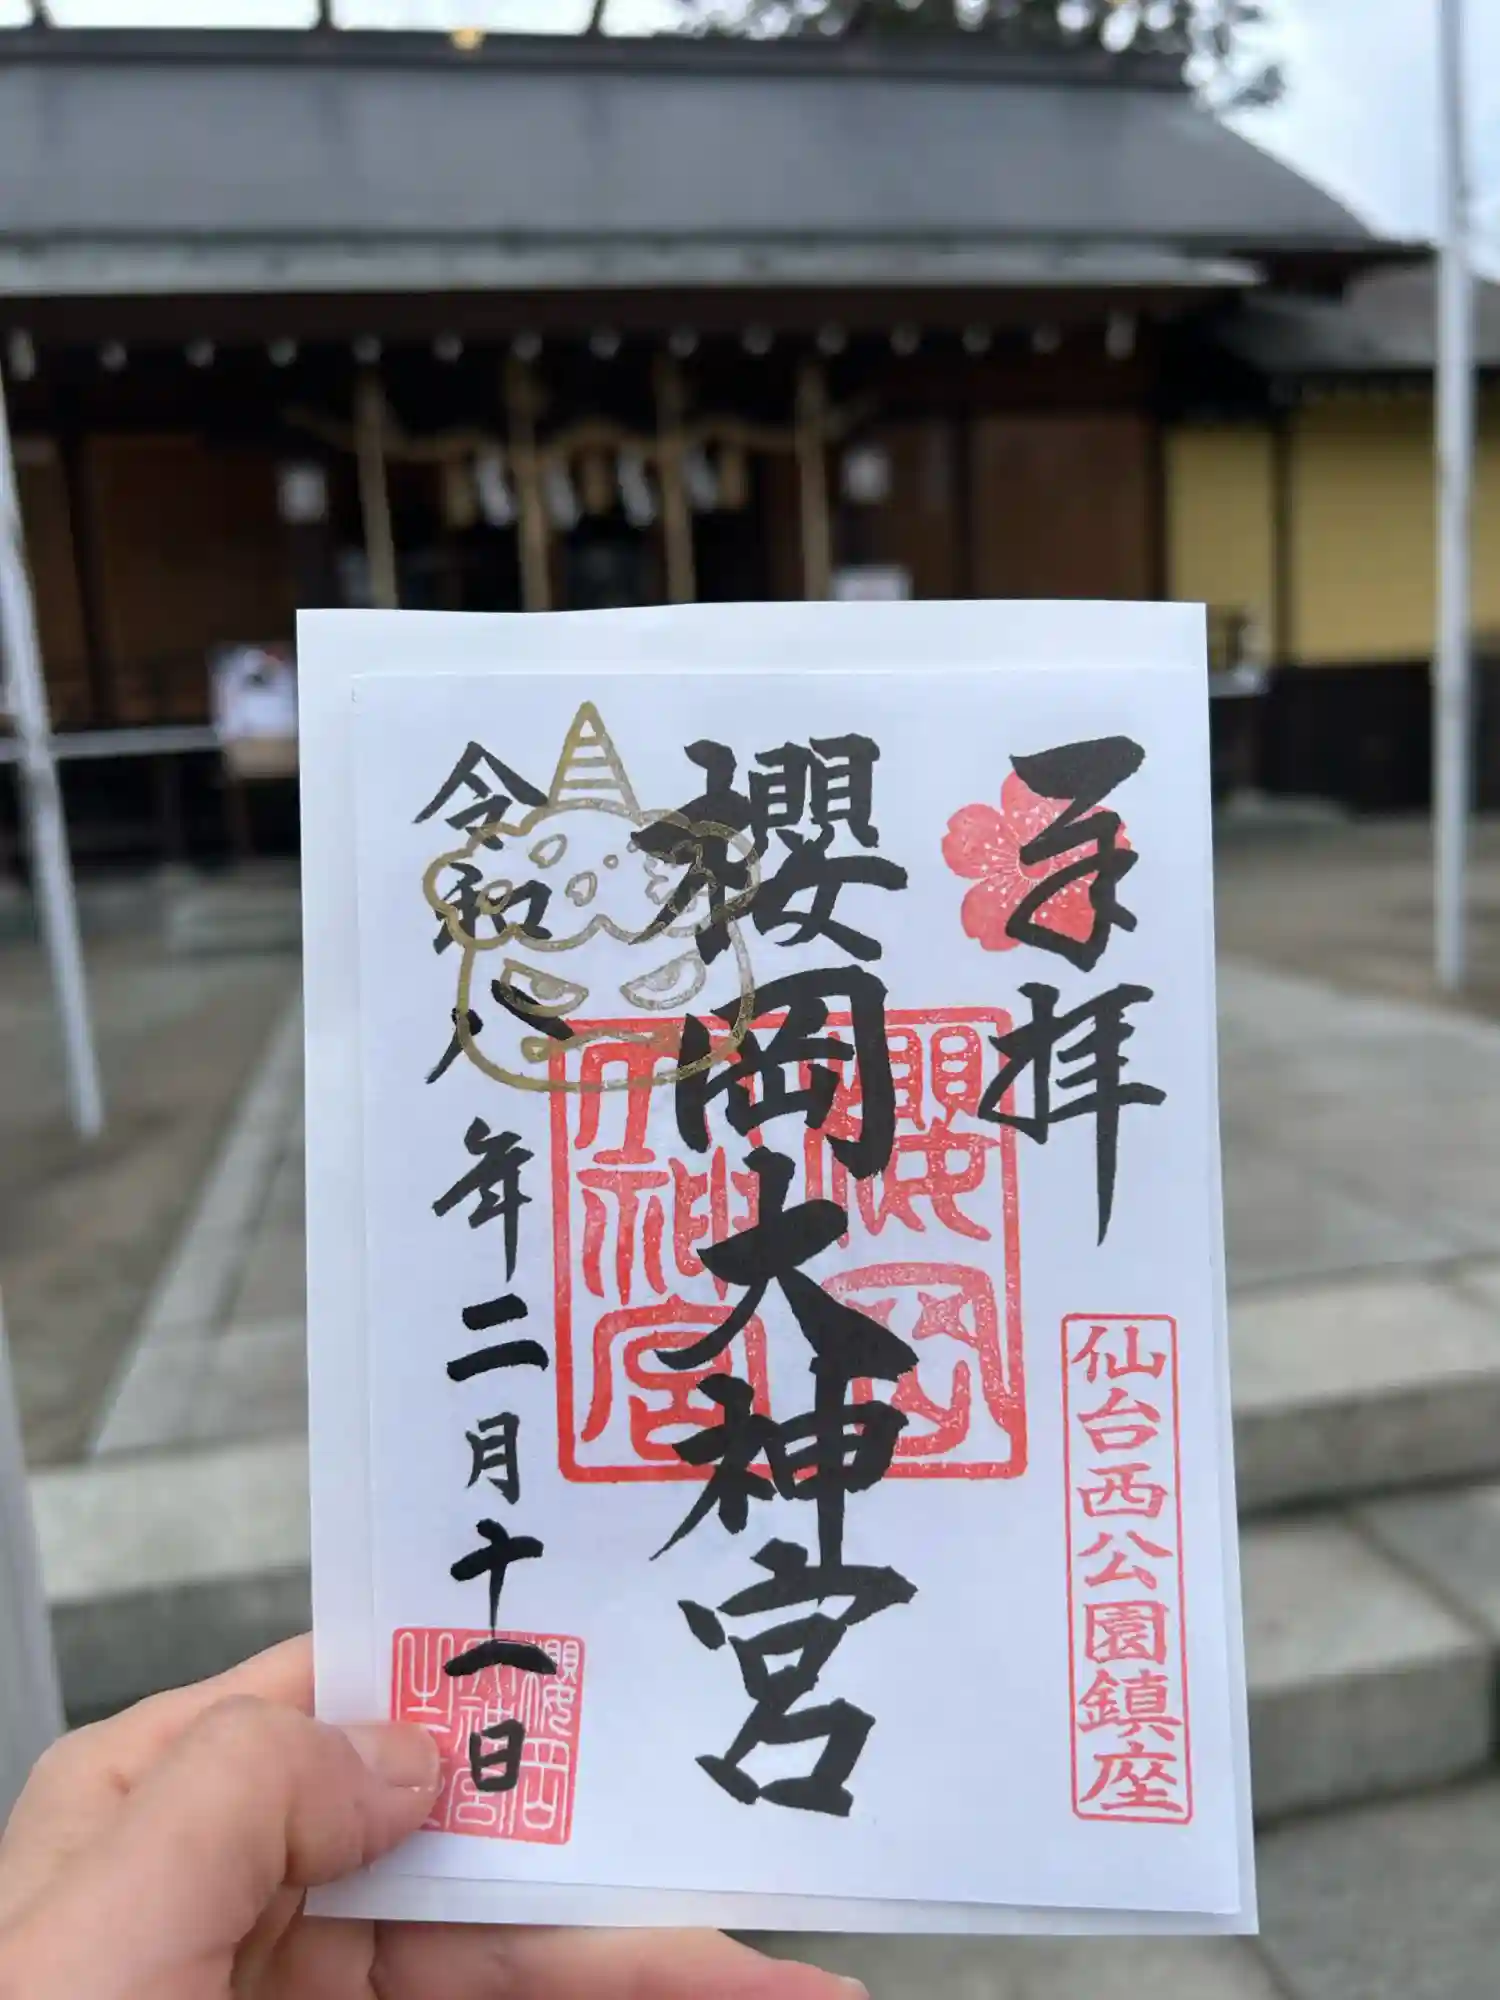 奉拝
仙台西公園鎮座
櫻岡大神宮
櫻岡
大神宮
令和八年二月十一日